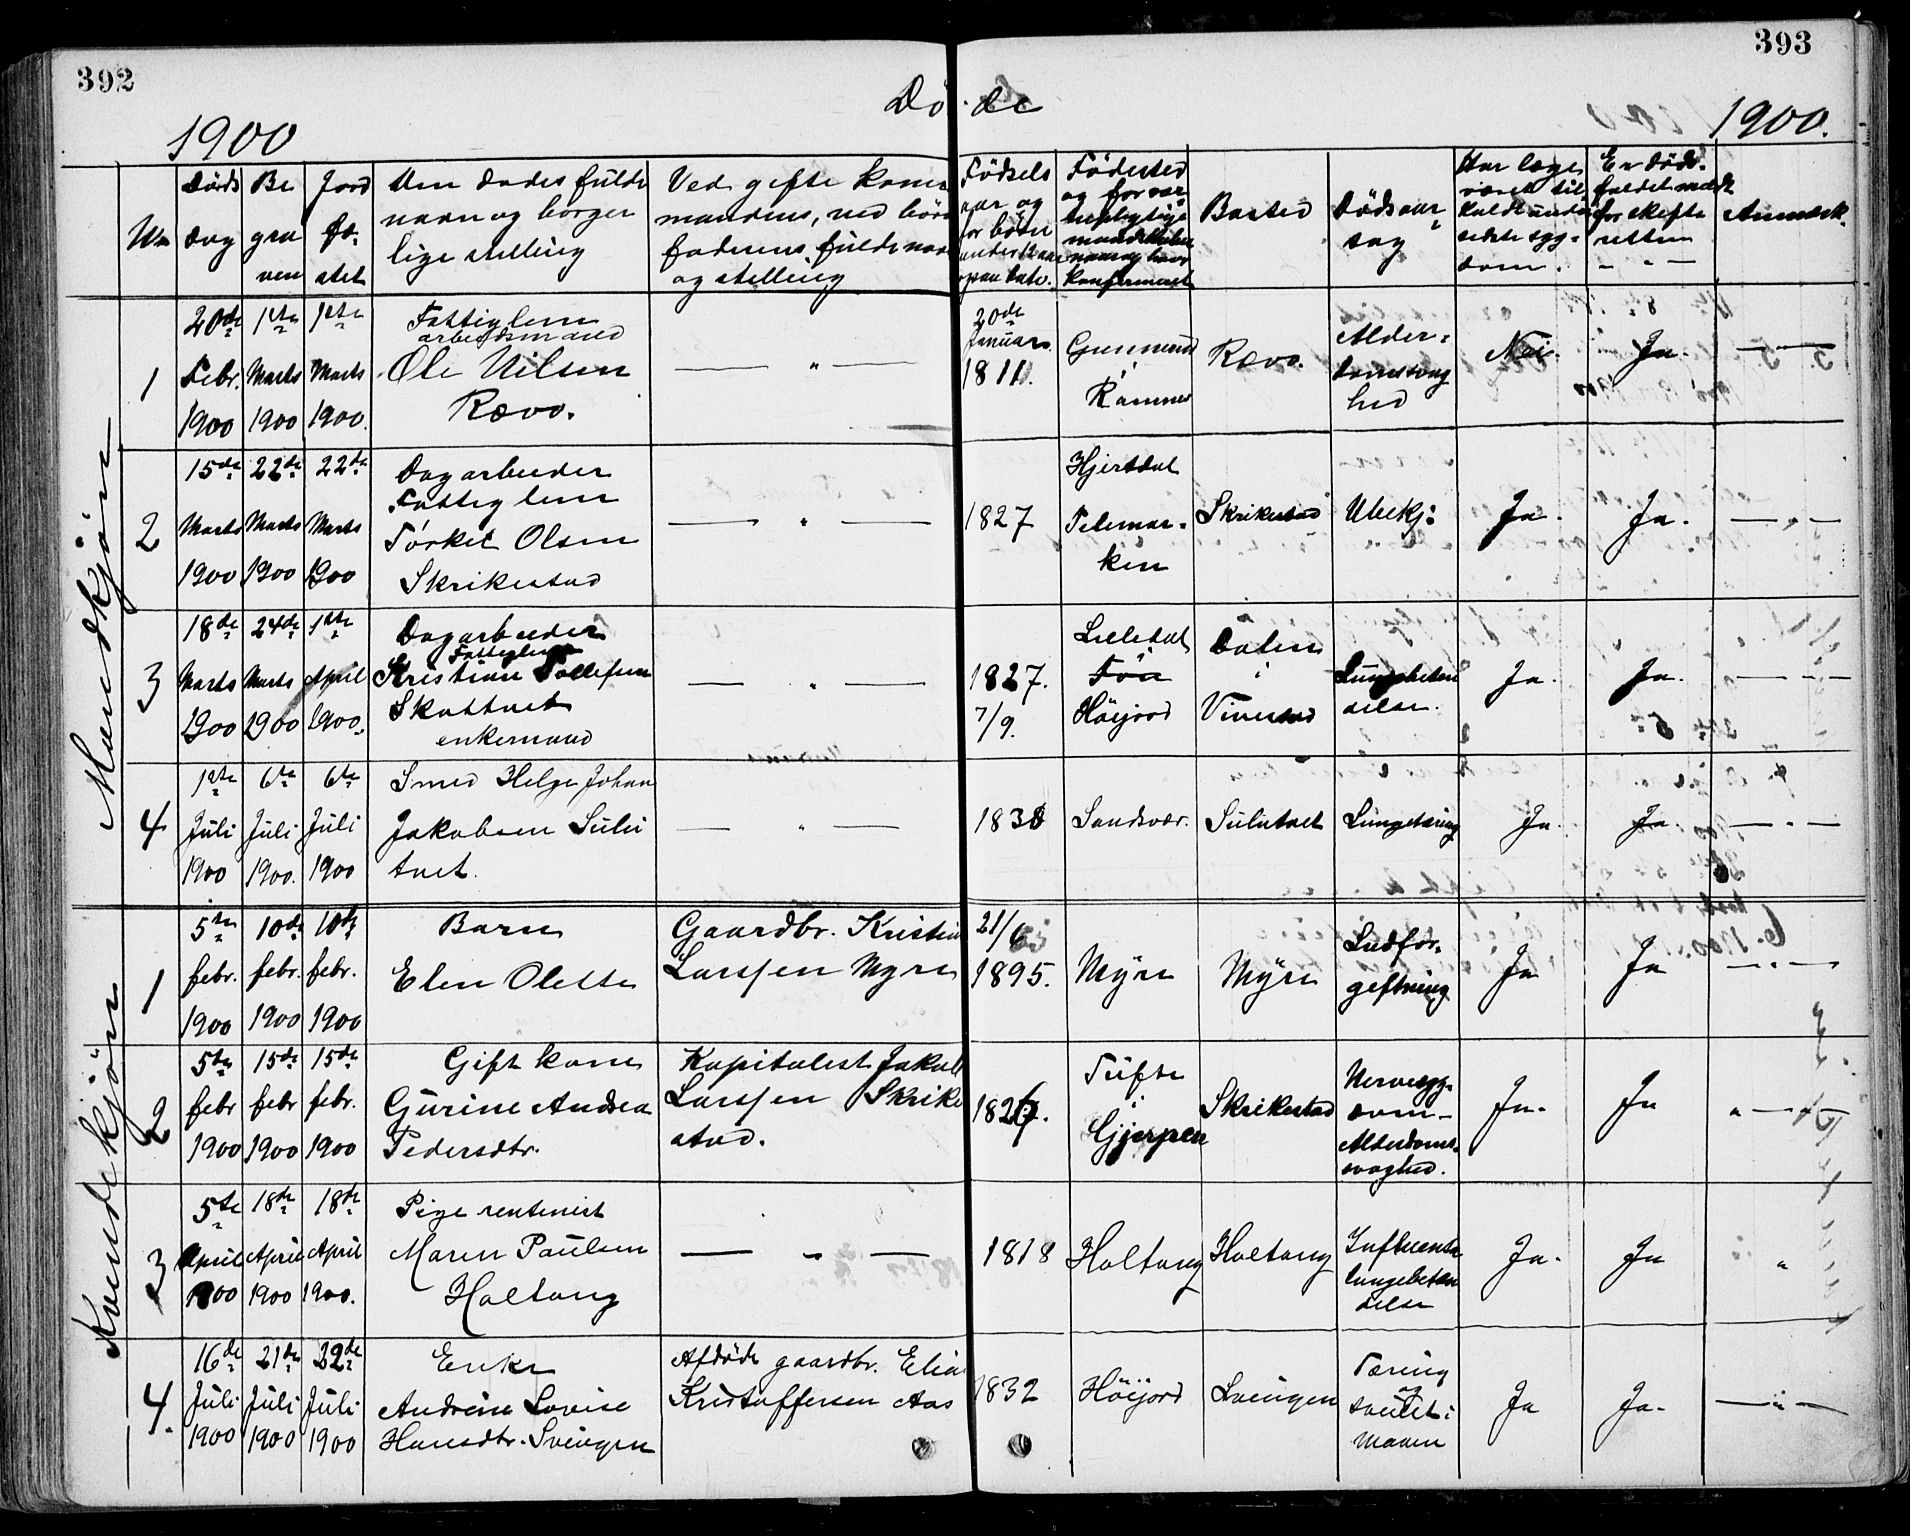 392
393
Dø de
1900
1900.
No
Døds dag
Be gra ven
Jord fæ- stet
Den dødes fulde navn og borger lige stilling
Ved gifte koner mandens, ved børn faderens fulde navn og stilling
Fødsels aar og for børn under 12 aar ogsaa dato.
Fødested og for
Bosted
Dødsaar sag
Har læge været til kaldt under sidste syg- dom.
Er døds- faldet meldt for skifte retten
Anmærk.
Mandkjøn
1
20de Febr. 1900
1ste Marts 1900
1ste Marts 1900.
Fattiglem
arbeidsmand
Ole Nilsen
Rævo.
— " —
20de Januar 1811.
Gunmund
i
Ramnes
Rævo.
Alder-
domssvag
hed
Nei.
Ja.
2
15de Marts 1900
22de Marts 1900
22de Marts 1900
Dagarbeider
Fattiglem
Tørkel Olsen
Skrikestad
— " —
1827
Hjertdal
Telemar-
ken
Skrikestad
Ubekj:
Ja.
Ja.
— " —
3
18de Marts 1900
24de Marts 1900
1ste April 1900.
Dagarbeider
Fattiglem
Kristian Tollefsen
Skattvet
enkemand
— " —
1827.
7/9.
Lieledal
Fön
Höijord
Dalen
i
Vivestad
Lungebetæn
delse.
Ja.
Ja.
— " —
4
1ste Juli 1900
6te Juli 1900.
6te Juli 1900
Smed Helge Johan
Jakobsen Sulu
tvet.
— " —
1838
Sandsvær.
Sulutvet
Lungetæring
Ja.
Ja.
— " —
Kvindekjøn
1
5te febr. 1900
10de febr. 1900
10de febr. 1900
Barn
Elen Olette
Gaardbr. Kristian
Larssen Myre
21/6
1895.
Myre
Myre
Ludfor-
giftning
Ja
Ja
— " —
2
5te febr 1900
15de febr 1900
15de febr. 1900
Gift kone
Gurine Andrea
Pedersdtr.
Kapitalist Jakob
Larssen Skrike
stad.
Tufte
i
Gjerpen
Skrikestad
Nervesyg-
dom—
Alderdoms-
svaghed.
Ja.
Ja
" — " —
3
5te April 1900
18de April 1900
18de April 1900.
Pige rentenist
Maren Paulsen
Holtung
— " —
1818
Holtung
Holtung
Influensa
lungebetæn
delse
Ja.
Ja
"
4.
16de Juli 1900
21de Juli 1900
22de Juli 1900
Enke
Andrine Lovise
Hansdtr. Svingen
Afdøde gaardbr. Elia
Kristoffersen Aas
1832
Höijord
Svingen
Tæring
og
saaret i
maven
Ja
Ja.
— " —